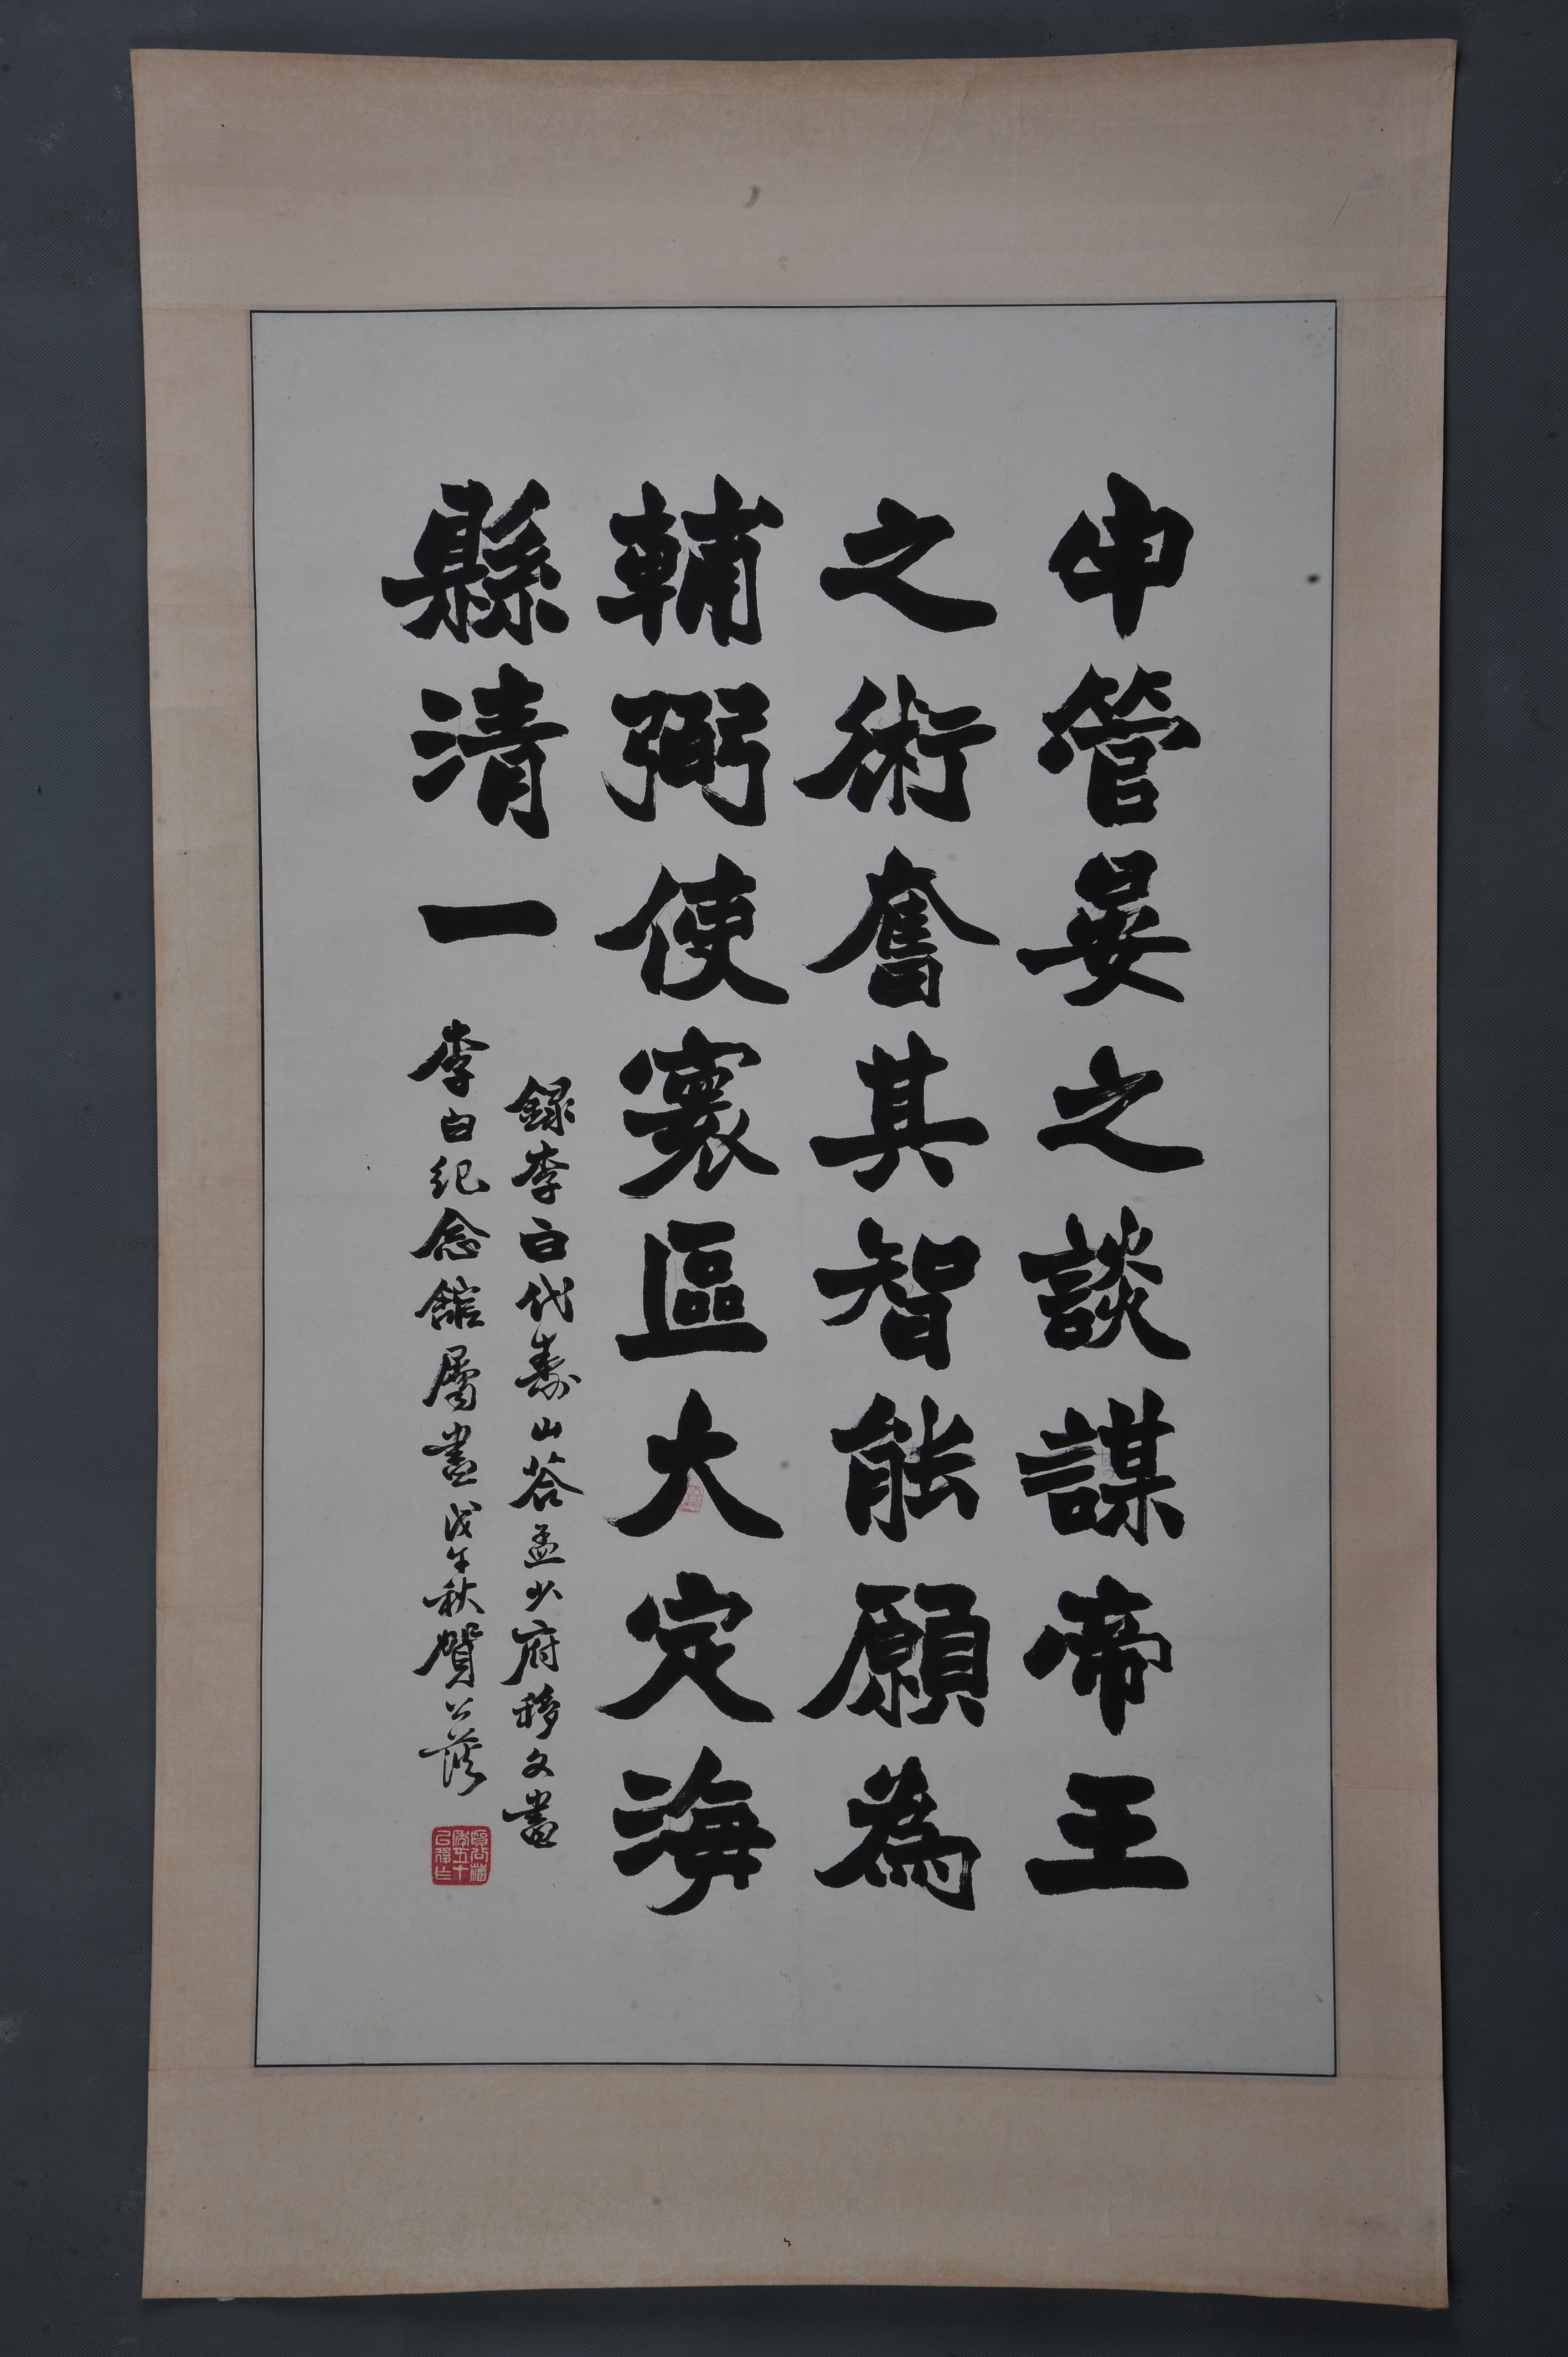 申管晏之談謀帝王
之術奮其智能願為
輔弼使寰區大定海
縣清一
錄李白代壽山荅孟少府移文書
李白纪念館屬書戊午秋賀公